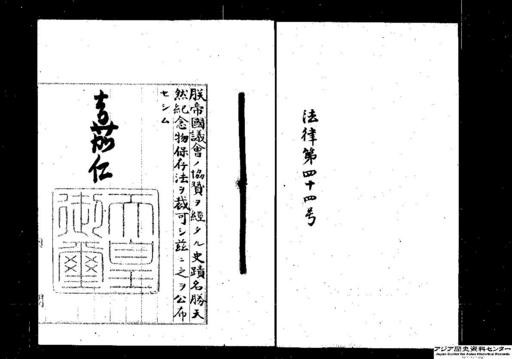 法律第四十四号
朕帝國議會ノ協賛ヲ經タル史蹟名勝天
然紀念物保存法ヲ裁可シ茲ニ之ヲ公布
セシム
嘉仁
天皇
御璽
アジア歴史資料センター
Japan Center for Asian Historical Records